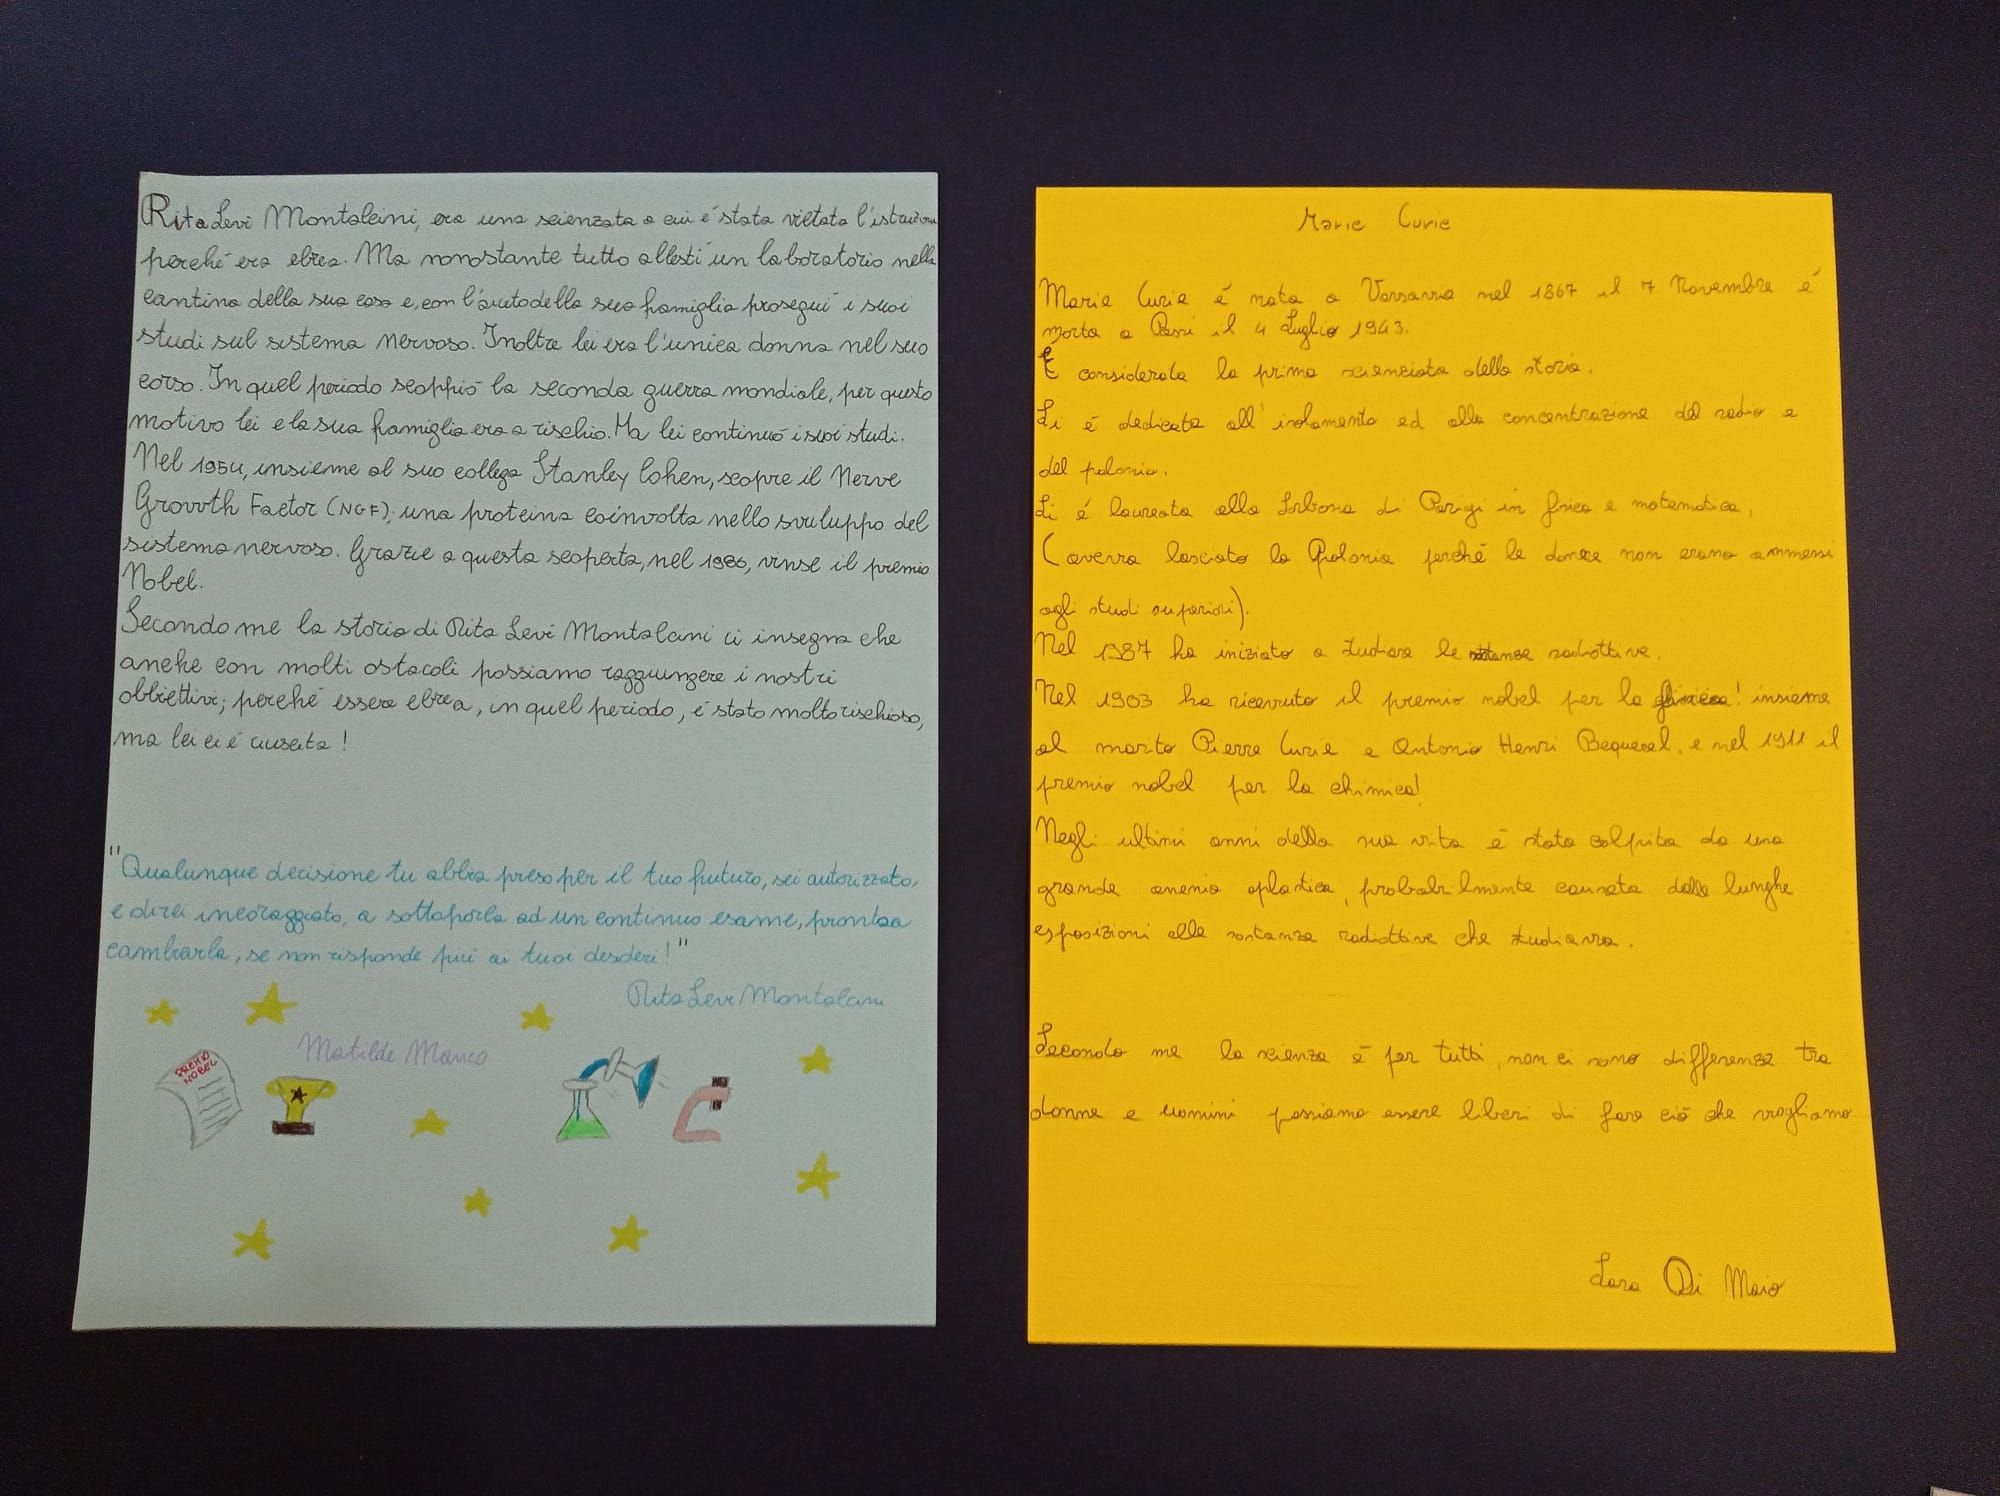 Rita Levi Montalcini, era una scienzata a cui é stata vietata l'istruzion
perché era ebrea. Ma nonostante tutto allestí un laboratorio nella
cantina della sua casa e, con l'aiuto della sua famiglia proseguí i suoi
studi sul sistema nervoso. Inoltre lei era l'unica donna nel suo
corso. In quel periodo scoppió la seconda guerra mondiale, per questo
motivo lei e la sua famiglia era a rischio. Ma lei continuó i suoi studi.
Nel 1954, insieme al suo collega Stanley Cohen, scopre il Nerve
Growth Factor (NGF), una proteina coinvolta nello sviluppo del
sistema nervoso. Grazie a questa scoperta, nel 1986, vinse il premio
Nobel.
Secondo me la storia di Rita Levi Montalcini ci insegna che
anche con molti ostacoli possiamo raggiungere i nostri
obbiettivi; perché essere ebrea, in quel periodo, é stato molto rischioso,
ma lei ci é riuscita!
"Qualunque decisione tu abbia preso per il tuo futuro, sei autorizzato,
e direi incoraggiato, a sottoporla ad un continuo esame, pronta a
cambiarla, se non risponde piú ai tuoi desideri!"
Rita Levi Montalcini
Matilde Manco
PREMIO
NOBEL
Marie Curie
Marie Curie é nata a Varsavia nel 1867 il 7 Novembre é
morta a Parigi il 4 Luglio 1943.
É considerata la prima scienziata della storia.
Si é dedicata all'isolamento ed alla concentrazione del radio e
del polonio.
Si é laureata alla Sorbona di Parigi in fisica e matematica.
(aveva lasciato la Polonia perché le donne non erano ammessi
agli studi superiori).
Nel 1987 ha iniziato a studiare le sostanze radiottive.
Nel 1903 ha ricevuto il premio nobel per la insieme
al marito Pierre Curie e Antonio Henri Bequerel, e nel 1911 il
premio nobel per la chimica!
Negli ultimi anni della sua vita é stata colpita da una
grande anemia aplastica, probabilmente causata dalle lunghe
esposizioni alle sostanze radiottive che studiava.
Secondo me la scienza é per tutti, non ci sono differenze tra
donne e uomini possiamo essere liberi di fare ció che vogliamo
Lara Di Maio